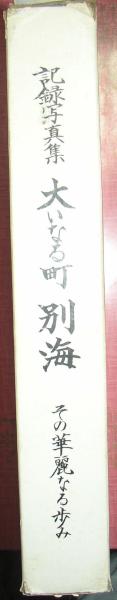 記録写真集
大いなる町 別海
その華麗なる歩み